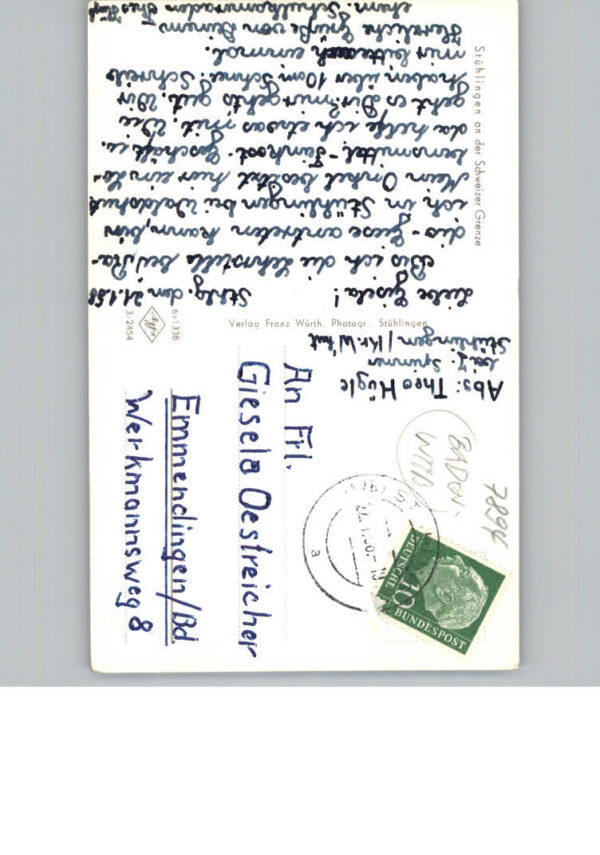 Liebe Gisela! Sthlg. den 21.1.58
Bis ich die Lehrstelle bei Ra-
dio-Giese antreten kann, bin
ich in Stühlingen bei Waldshut
Mein Onkel besitzt hier ein Le-
bensmittel-Feinkost-Geschäft u.
da helfe ich etwas mit. Wie
geht es Dir? mir gehts gut. Wir
haben über 10cm Schnee. Schreib
mir bitte auch einmal.
Herzliche Grüße von Deinem
ehem. Schulkameraden Theo Hügle
Abs: Theo Hügle
bei J. Spinner
Stühlingen/Kr. W'hut
An Frl.
Giesela Oestreicher
Emmendingen/Bd
Werkmannsweg 8
Stühlingen an der Schweizer Grenze
Verlag Franz Würth, Photogr., Stühlingen
Agfa
6/1338
3/2454
DEUTSCHE
BUNDESPOST
10
a
7894
BADEN